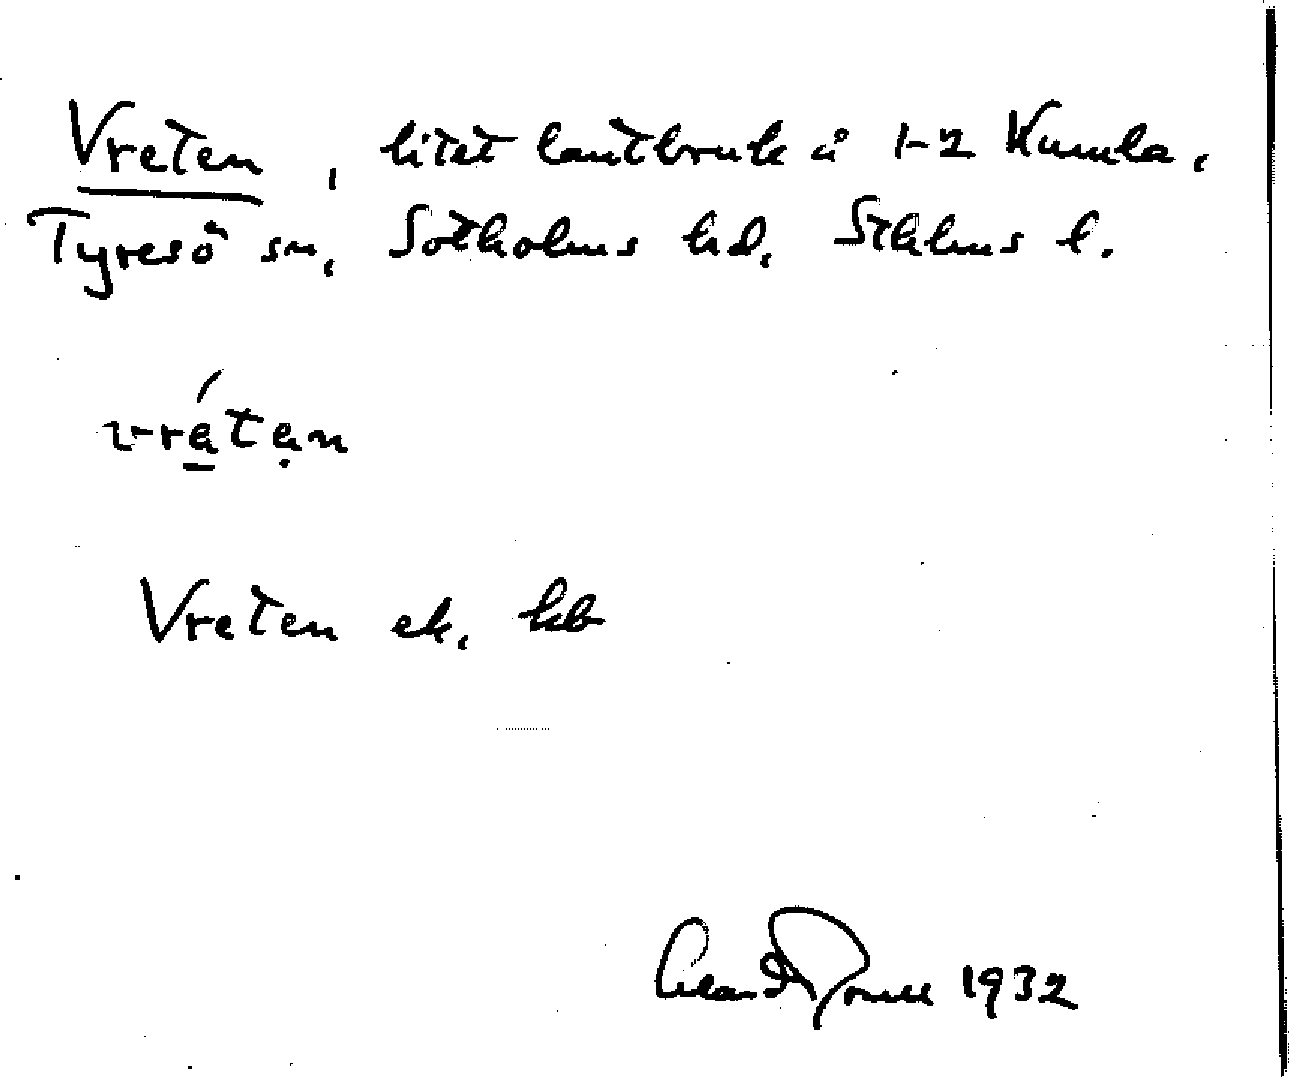 Vreten, litet lantbruk å 1-2 Kumla,
Tyresö sn, Sotholms hd, Sthlms l.
vrátạn
Vreten ek. kb
1932